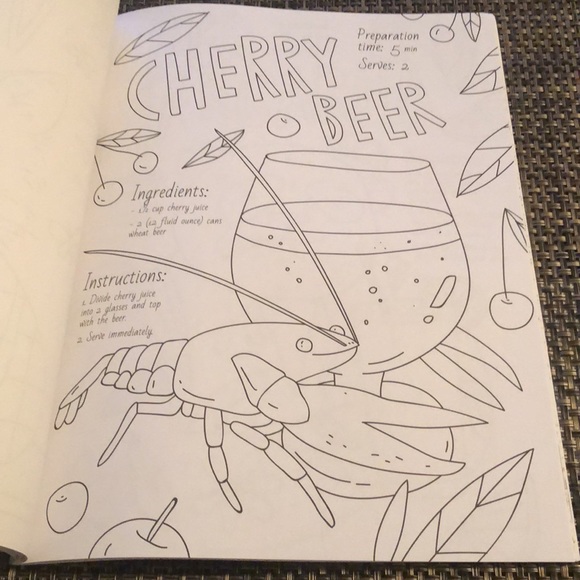 CHERRY
BEER
Preparation
time: 5 min
Serves: 2
Ingredients:
- 1½ cup cherry juice
- 2 (12 fluid ounce) cans
wheat beer
Instructions:
1. Divide cherry juice
into 2 glasses and top
with the beer.
2. Serve immediately.